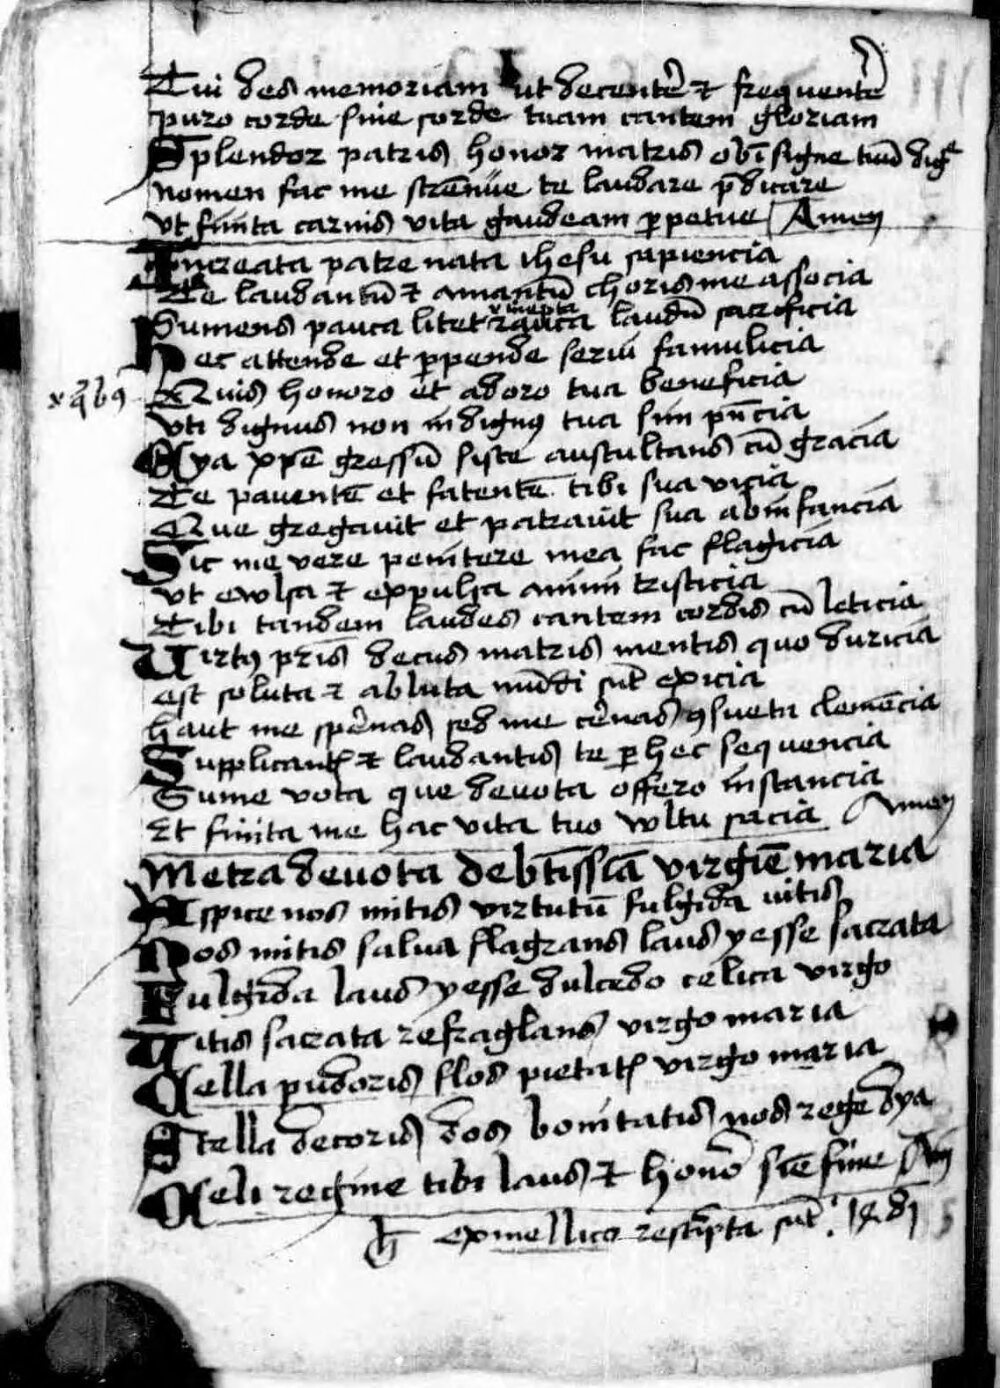 Tui des memoriam ut decent̄ ⁊ frequent̄
puro corde sine sorde tuam cantem gloriam
Splendor patris honor matris ob īsigne tuū digē
nomen fac me strēnue te laudare p̄dicare
vt finita carnis vita gaudeam ꝑpetue Amen
Increata patre nata ihesu sapiencia
Te laudantū ⁊ amantū choris me associa
Sumens pauca litet rauca laudū sacrificia
Hec attende et ꝑpende serui famulicia
Quis honoro et adoro tua beneficia
x q̄bꝯ
vti dignus non indignꝯ tua sim pn̄cia
Eya xp̄e gressū siste auscultans cū gracia
Te pauentē et fatentē tibi sua vicia
Que gregauit et patrauit sua ab infancia
Sic me vere penitere mea fac flagicia
vt ewlsa ⁊ expulsa animi tristicia
Tibi tandem laudes cantem cordis cū leticia
Virtꝯ pr̄is decus matris mentis quo duricia
est soluta ⁊ abluta mūdi sūt
haut me sp̄nas sed me c̄nas ꝯsueta clemēcia
Supplicantꝭ ⁊ laudantis te ꝑ hec sequencia
Sume vota que deuota offero instancia
Et finita me hac vita tuo wltu sacia Amen
Metra deuota de bt̄issīa virgīe maria
Aspice nos mitis virtutū fulgida vitis
Nos mitis salua flagrans laus yesse sacrata
Fulgida laus yesse dulcedo celica virgo
Vitis sacrata refraglans virgo maria
Cella pudoris flos pietatꝭ virgo maria
Stella decoris dos bonitatis nos rege dya
Celi regine tibi laus ⁊ honor sit sine fine Amē
h̄ ex mellico rescripta sūt 1481